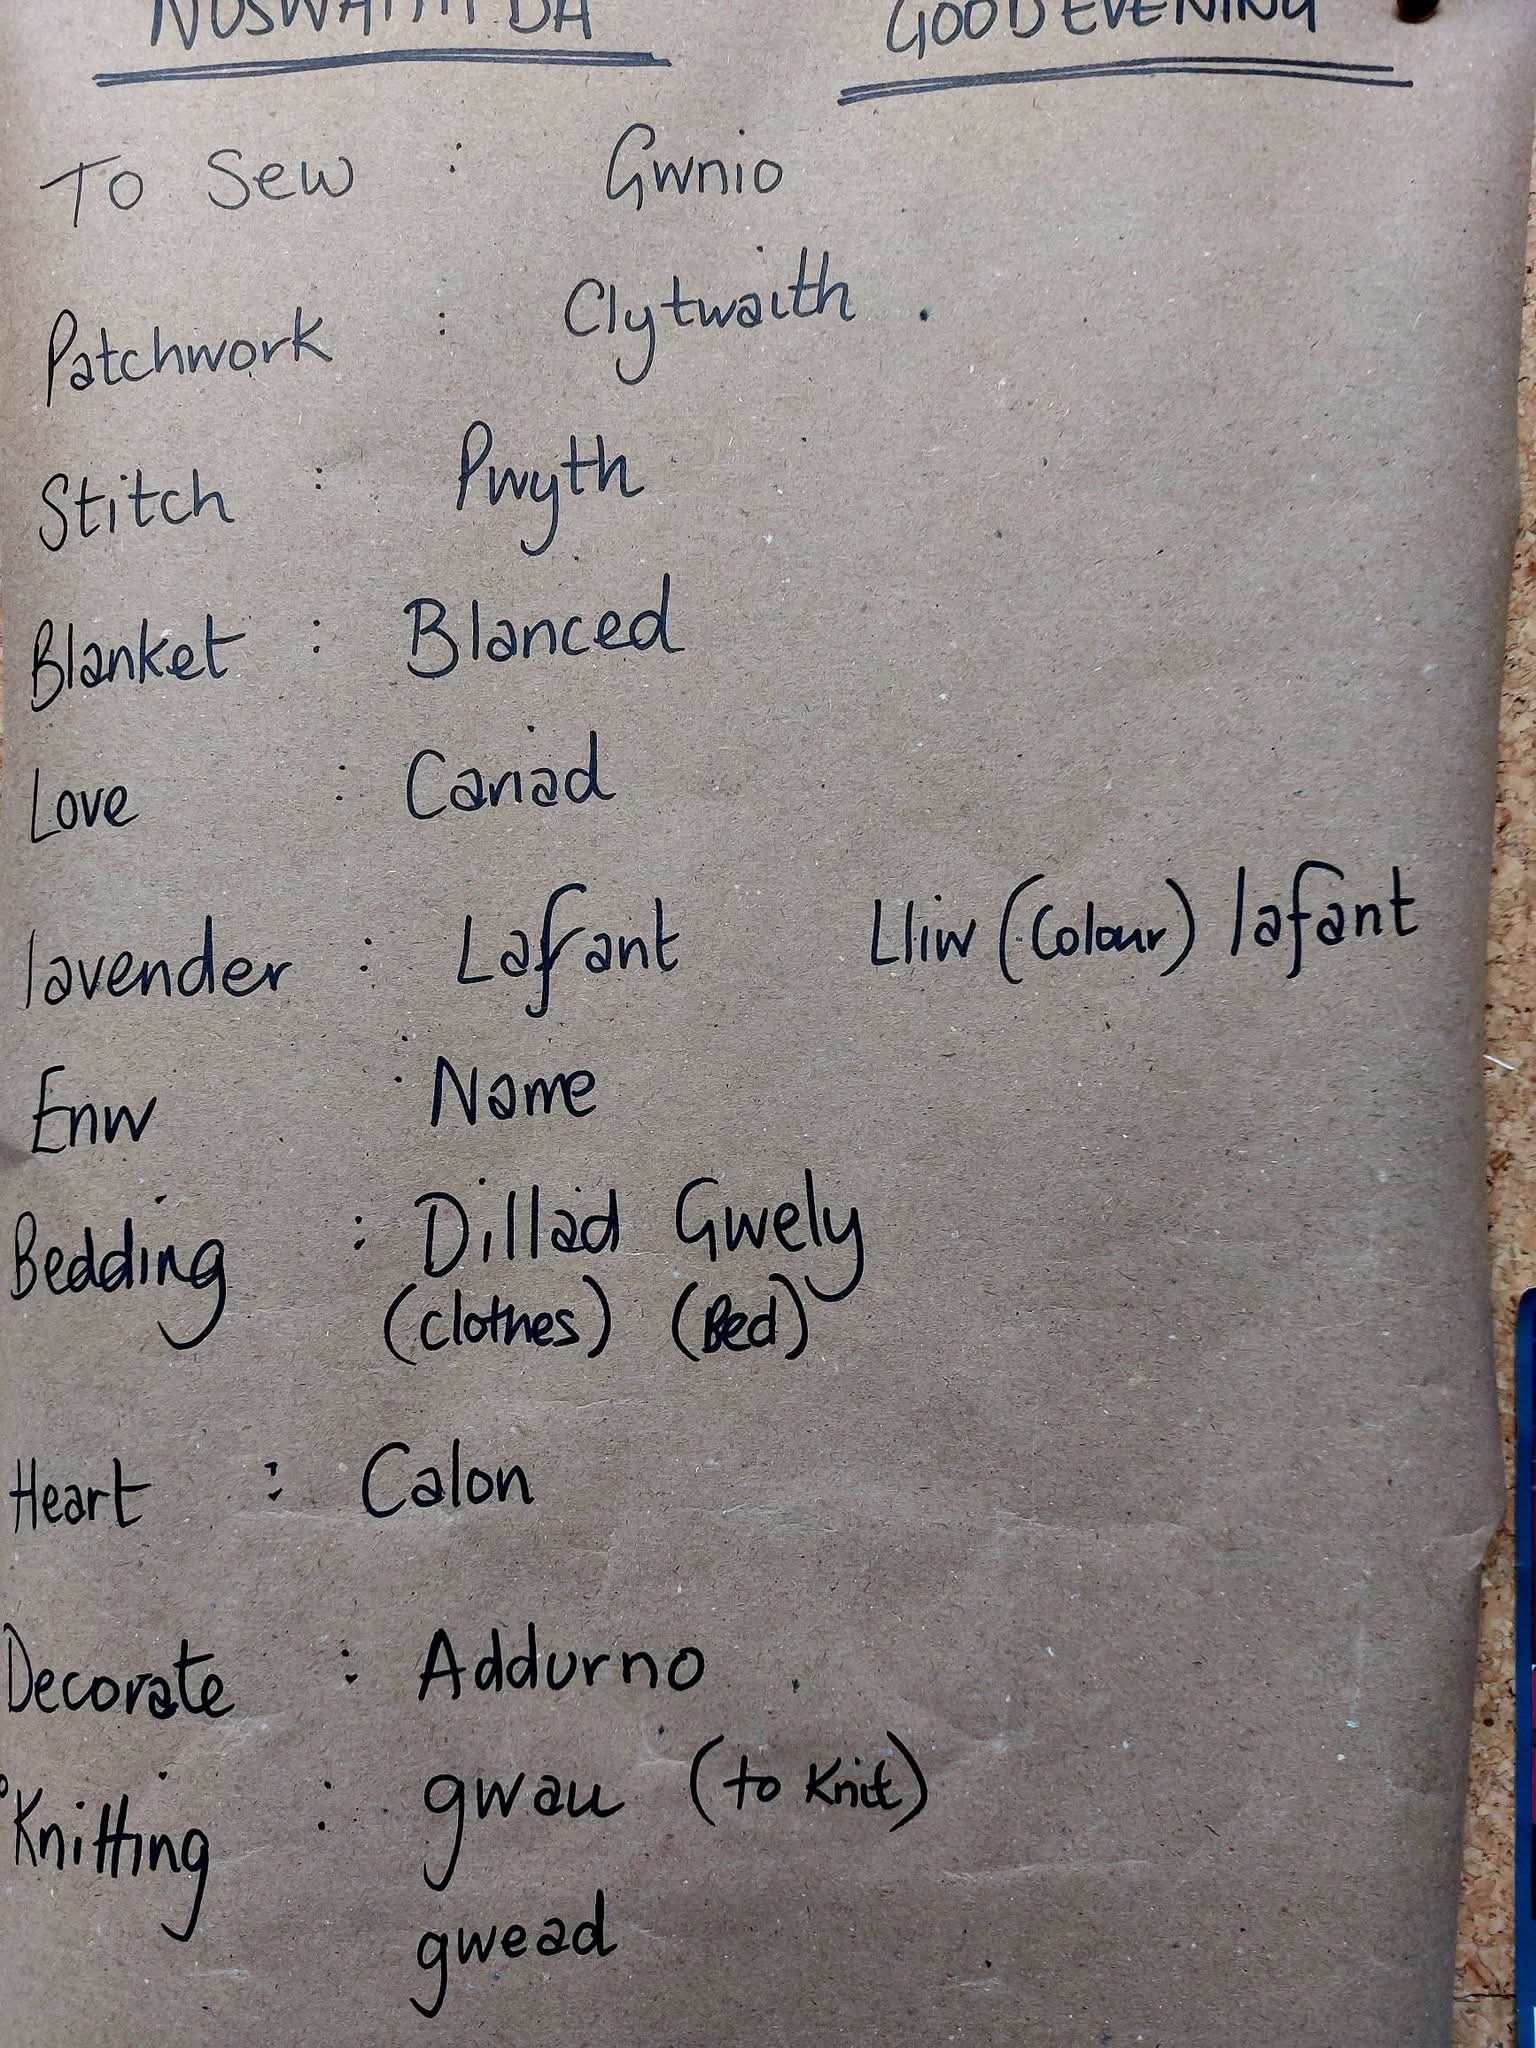 NOSWAITH DA GOOD EVENING
To Sew : Gwnio
Patchwork : Clytwaith .
Stitch : Pwyth
Blanket : Blanced
Love : Cariad
lavender : Lafant Lliw (Colour) lafant
Enw : Name
Bedding : Dillad Gwely
(clothes) (Bed)
Heart : Calon
Decorate : Addurno
Knitting : gwau (to Knit)
gwead